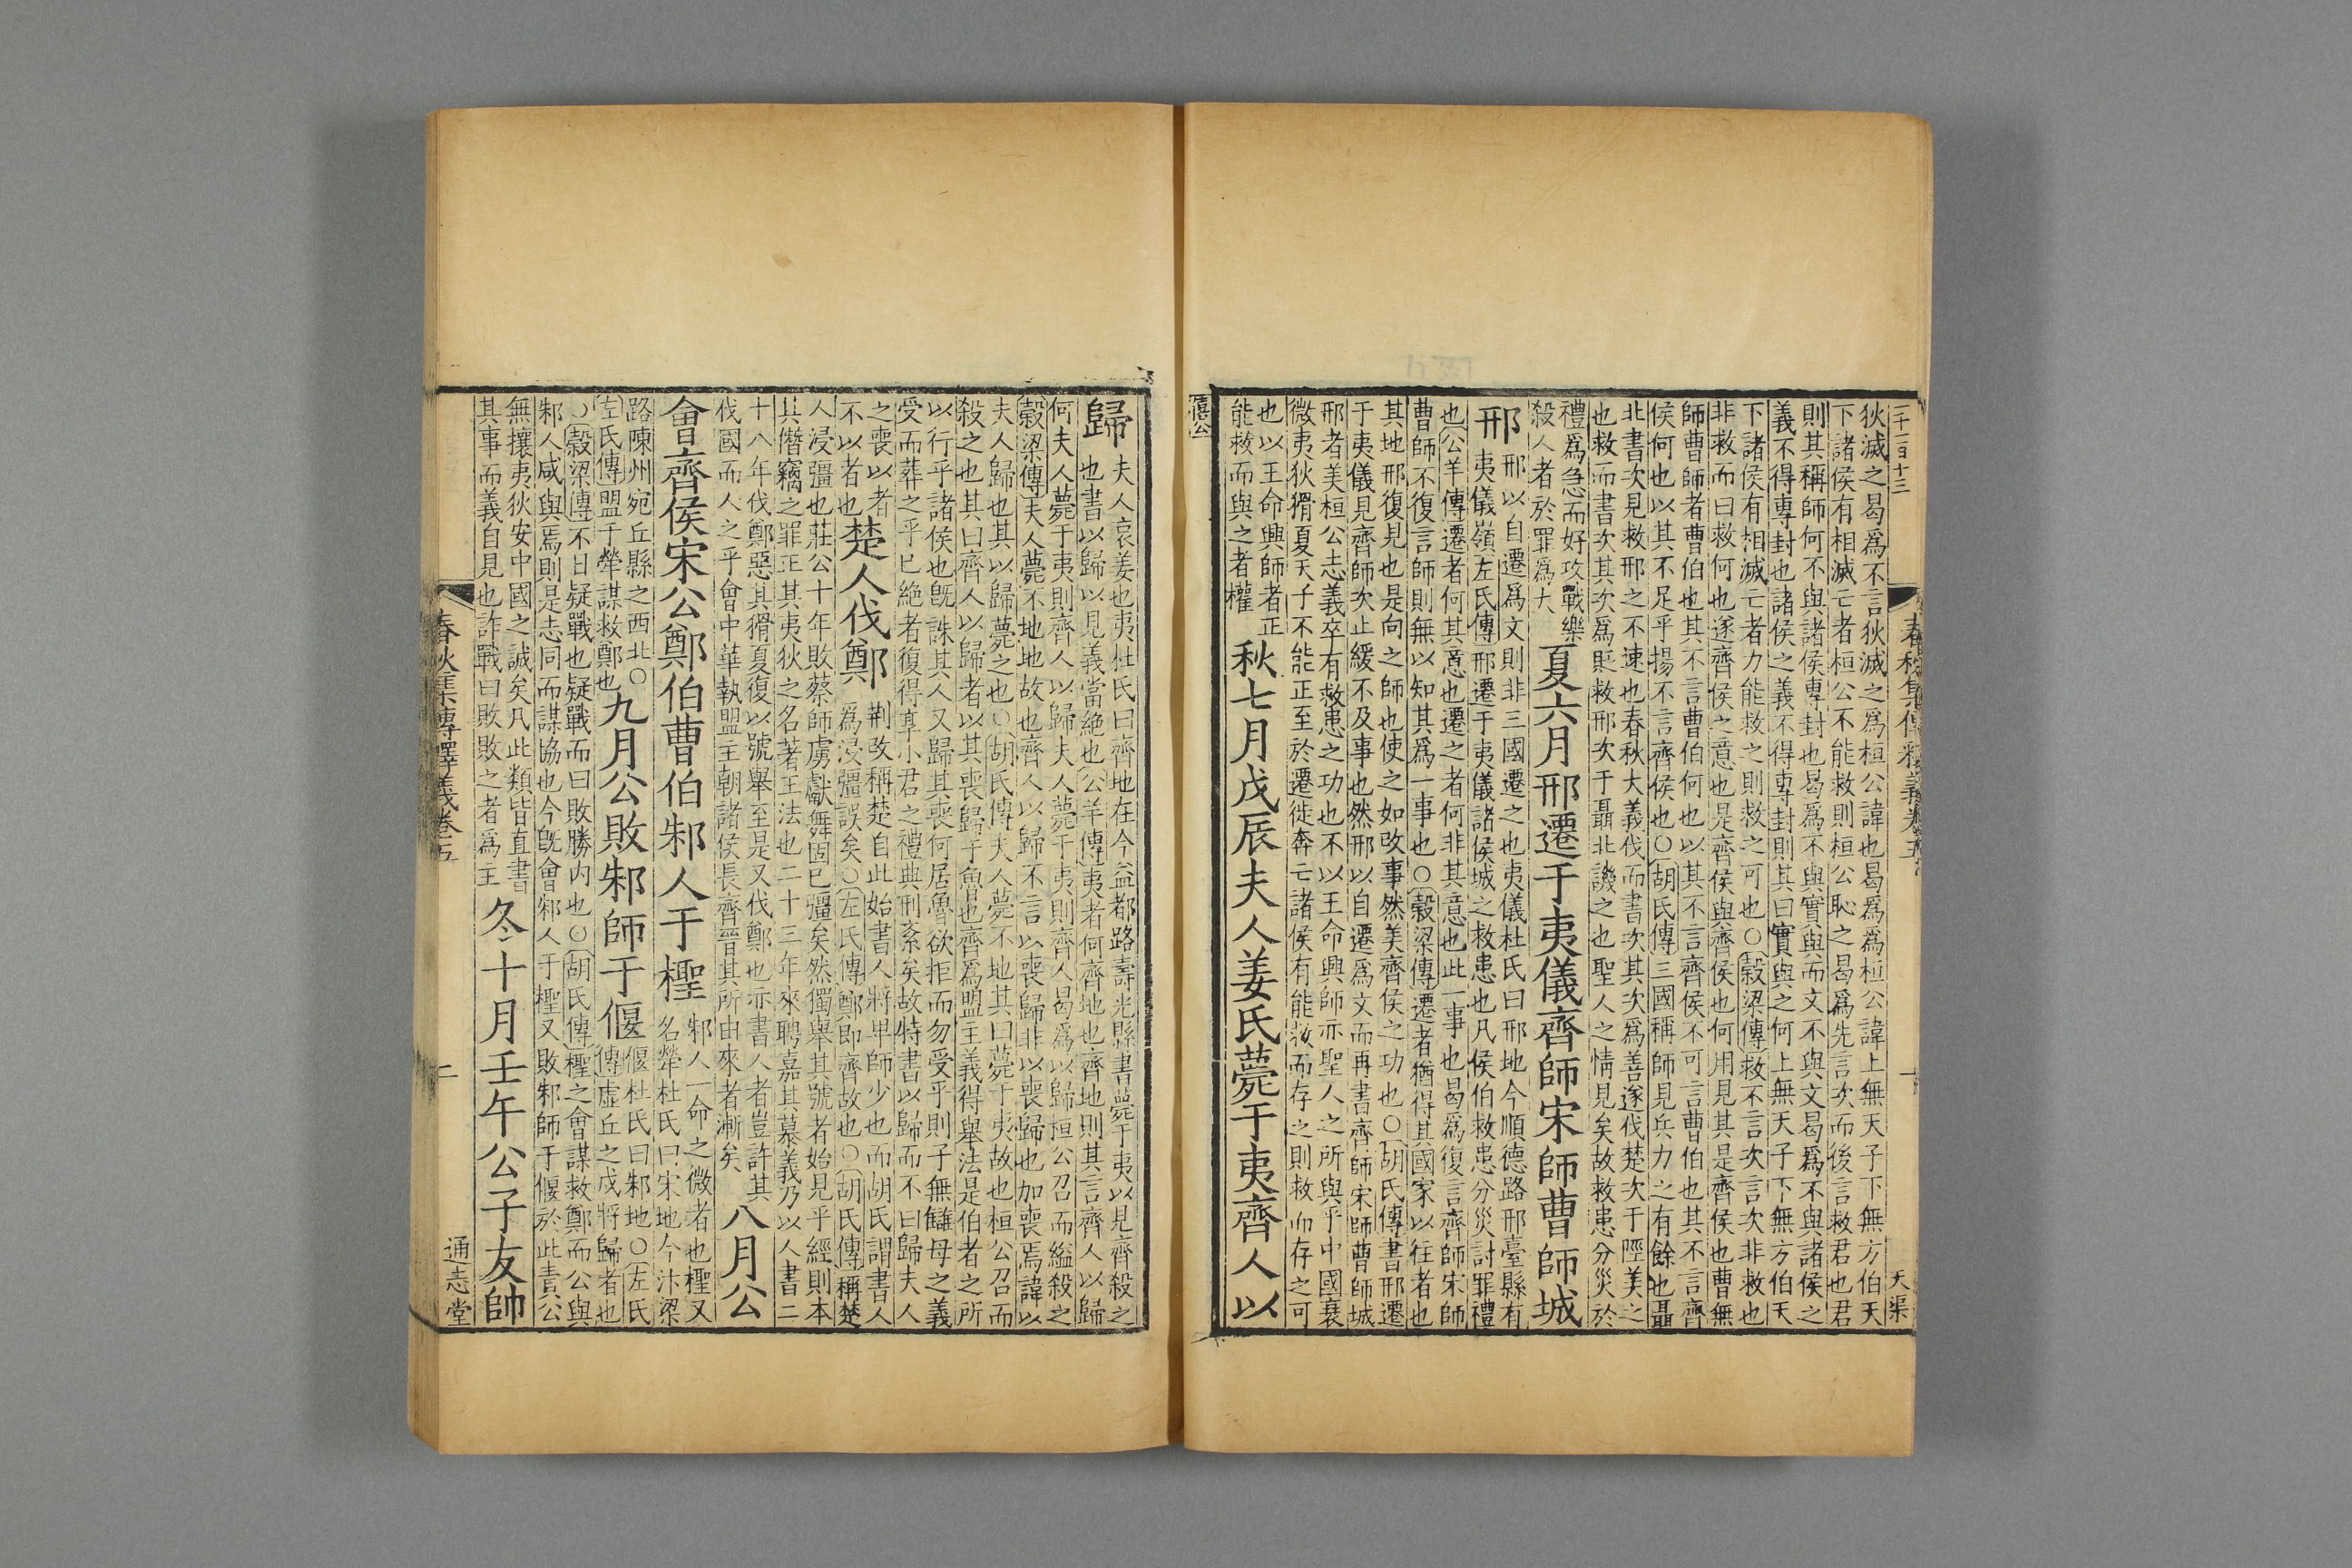 二千二百十三
天渠
狄滅之曷爲不言狄滅之爲桓公諱也曷爲爲桓公諱上無天子下無方伯天
下諸侯有相滅亡者桓公不能救則桓公恥之曷爲先言次而後言救君也君
則其稱師何不與諸侯專封也曷爲不與實與而文不與文曷爲不與諸侯之
義不得專封也諸侯之義不得專封則其曰實與之何上無天子下無方伯天
下諸侯有相滅亡者力能救之則救之可也○穀梁傳救不言次言次非救也
非救而曰救何也遂齊侯之意也是齊侯與齊侯也何用見其是齊侯也曹無
師曹師者曹伯也其不言曹伯何也以其不言齊侯不可言曹伯也其不言齊
侯何也以其不足乎揚不言齊侯也○胡氏傳三國稱師見兵力之有餘也聶
北書次見救邢之不速也春秋大義伐而書次其次爲善遂伐楚次于陘美之
也救而書次其次爲貶救邢次于聶北譏之也聖人之情見矣故救患分災於
禮爲急而好攻戰樂
殺人者於罪爲大
夏六月邢遷于夷儀齊師宋師曹師城
邢
邢以自遷爲文則非三國遷之也夷儀杜氏曰邢地今順德路邢臺縣有
夷儀嶺左氏傳邢遷于夷儀諸侯城之救患也凡侯伯救患分災討罪禮
也公羊傳遷者何其意也遷之者何非其意也此一事也曷爲復言齊師宋師
曹師不復言師則無以知其爲一事也○穀梁傳遷者猶得其國家以往者也
其地邢復見也是向之師也使之如改事然美齊侯之功也○胡氏傳書邢遷
于夷儀見齊師次止緩不及事也然邢以自遷爲文而再書齊師宋師曹師城
邢者美桓公志義卒有救患之功也不以王命興師亦聖人之所與乎中國衰
微夷狄猾夏天子不能正至於遷徙奔亡諸侯有能救而存之則救而存之可
也以王命興師者正
能救而與之者權
秋七月戊辰夫人姜氏薨于夷齊人以
僖公
歸
夫人哀姜也夷杜氏曰齊地在今益都路壽光縣書薨于夷以見齊殺之
也書以歸以見義當絕也公羊傳夷者何齊地也齊地則其言齊人以歸
何夫人薨于夷則齊人以歸夫人薨于夷則齊人曷爲以歸桓公召而縊殺之
穀梁傳夫人薨不地地故也齊人以歸不言以喪歸非以喪歸也加喪焉諱以
夫人歸也其以歸薨之也○胡氏傳夫人薨不地其曰薨于夷故也桓公召而
殺之也其曰齊人以歸者以其喪歸于魯也齊爲盟主義得舉法是伯者之所
以行乎諸侯也既誅其人又歸其喪何居魯欲拒而勿受乎則子無讎母之義
受而葬之乎已絕者復得享小君之禮典刑紊矣故特書以歸而不曰歸夫人
之喪以者
不以者也
楚人伐鄭
荆改稱楚自此始書人將卑師少也而胡氏謂書人
爲浸彊誤矣○左氏傳鄭即齊故也○胡氏傳稱楚
人浸彊也莊公十年敗蔡師虜獻舞固已彊矣然獨舉其號者始見乎經則本
其僭竊之罪正其夷狄之名著王法也二十三年來聘嘉其慕義乃以人書二
十八年伐鄭惡其猾夏復以號舉至是又伐鄭也亦書人者豈許其
伐國而人之乎會中華執盟主朝諸侯長齊晉其所由來者漸矣
八月公
會齊侯宋公鄭伯曹伯邾人于檉
邾人一命之微者也檉又
名犖杜氏曰宋地今汴梁
路陳州宛丘縣之西北○
左氏傳盟于犖謀救鄭也
九月公敗邾師于偃
偃杜氏曰邾地○左氏
傳虛丘之戍將歸者也
○穀梁傳不日疑戰也疑戰而曰敗勝內也○胡氏傳檉之會謀救鄭而公與
邾人咸與焉則是志同而謀協也今既會邾人于檉又敗邾師于偃於此責公
無攘夷狄安中國之誠矣凡此類皆直書
其事而義自見也詐戰曰敗敗之者爲主
冬十月壬午公子友帥
春秋集傳釋義卷五
二
通志堂